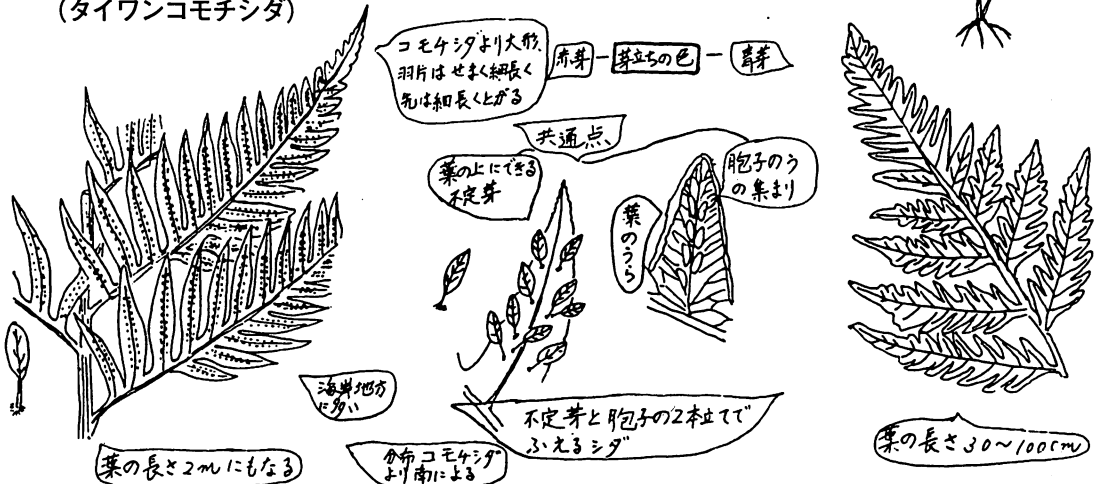 (タイワンコモチシダ)
コモチシダより大形、
羽片はせまく細長く
先は細長くとがる
赤芽ー芽立ちの色ー青芽
共通点
葉の上にできる
不定芽
胞子のう
の集まり
葉のうら
海岸地方
に多い
不定芽と胞子の2本立てで
ふえるシダ
葉の長さ2mにもなる
分布コモチシダ
より南による
葉の長さ30〜100cm